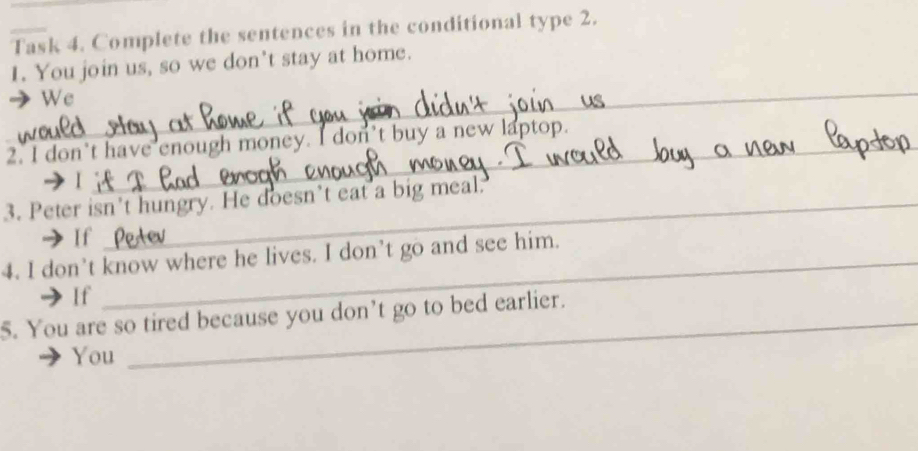 Task 4. Complete the sentences in the conditional type 2.
1. You join us, so we don't stay at home.
→ We
would stay at home if you join didn't join us
2. I don't have enough money. I don't buy a new laptop.
→ I if I had enogh enough money. I would buy a new laptop
3. Peter isn't hungry. He doesn't eat a big meal.
→ If Peter
4. I don't know where he lives. I don't go and see him.
→ If
5. You are so tired because you don't go to bed earlier.
→ You